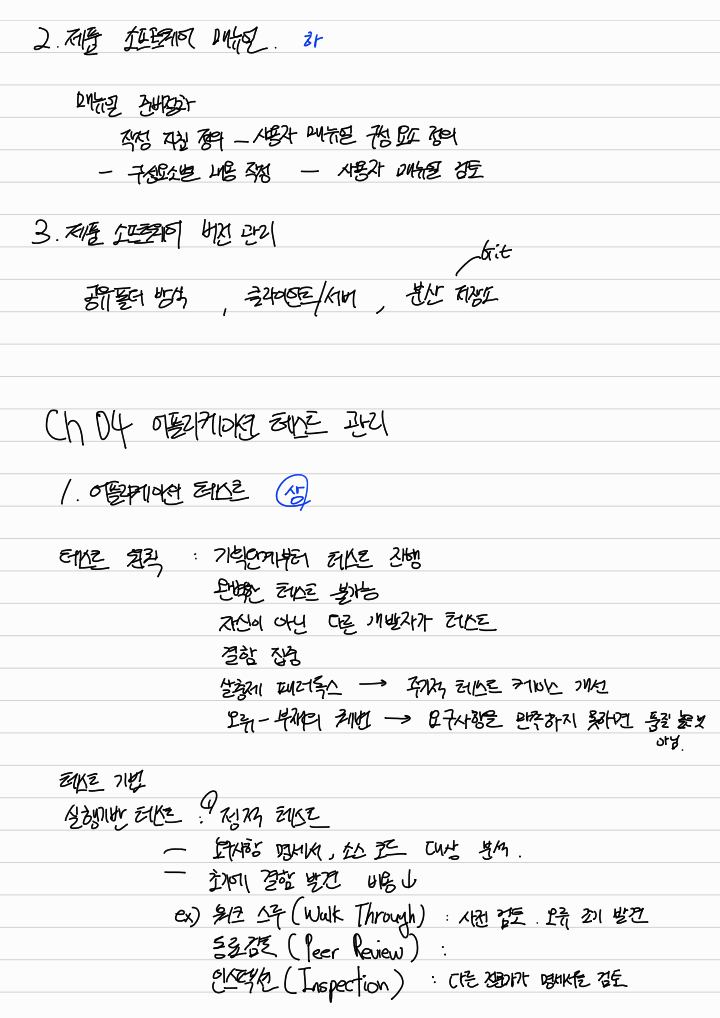 2. 제품 소프트웨어 매뉴얼. 하
매뉴얼 준비절차
작성 지침 정의 - 사용자 매뉴얼 구성 요소 정의
- 구성요소별 내용 작성 - 사용자 매뉴얼 검토
3. 제품 소프트웨어 버전 관리
Git
공유폴더 방식, 클라이언트/서버, 분산 저장소
Ch 04 어플리케이션 테스트 관리
1. 어플리케이션 테스트 상
테스트 원칙 : 기획단계부터 테스트 진행
완벽한 테스트 불가능
자신이 아닌 다른 개발자가 테스트
결함 집중
살충제 패러독스 → 주기적 테스트 케이스 개선
오류-부재의 궤변 → 요구사항을 만족하지 못하면 품질 높은 것
아님.
테스트 기법
실행기반 테스트 : ① 정적 테스트
- 요구사항 명세서, 소스 코드 대상 분석.
- 초기에 결함 발견 비용↓
ex) 워크 스루(Walk Through) : 사전 검토. 오류 조기 발견
동료검토 (Peer Review) :
인스펙션(Inspection) : 다른 전문가가 명세서를 검토